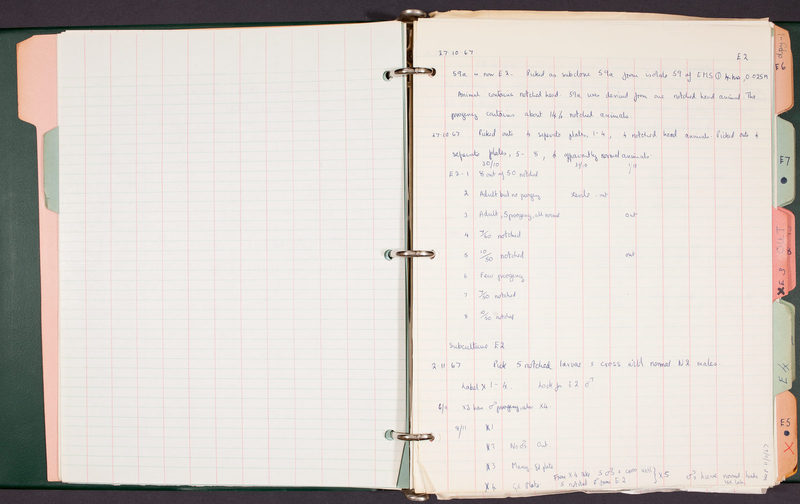 27.10.67
E2
59a is now E2. Picked as subclone 59a from isolate 59 of EMS ① 4 hrs, 0.025M
Animal contains notched head. 59a was derived from one notched head animal. The
progeny contains about 14% notched animals.
27.10.67 Picked onto 4 separate plates, 1-4, 4 notched head animals. Picked onto 4
separate plates, 5-8, 4 apparently normal animals
30/10
E2-1 8 out of 50 notched
2 Adult but no progeny out
3 Adult, 5 progeny, all normal out
4 7/50 notched
5 10/50 notched out
6 Few progeny
7 7/50 notched
8 /50 notched
Subculture E2
2.11.67 Pick 5 notched larvae & cross with normal N2 males.
Label X 1-4 Look for E2 ♂
6/11 X3 has ♂ progeny, also X4.
8/11 X1
X2 No ♂s Out.
X3 Many ♂ plate
X4 Gd Plate From X4 take 3 ♂s & cross with } X5 ♂s have normal heads
5 notched from E2
dpy-1
E6
E7
OUT
E3
E4
E5
X